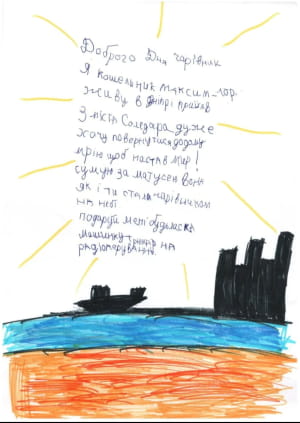 Доброго Дня чарівник
Я Кошельник Максим
живу в Дніпрі приїхав
З міста Соледара дуже
хочу повернутися додому
мрію щоб настав мир!
сумую за матусею вона
як і ти стала чарівником
на небі
подаруй мені будьласка
машинку на
радіокеруванні